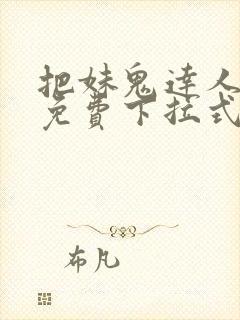 把妹鬼達人
免費下拉式
布凡